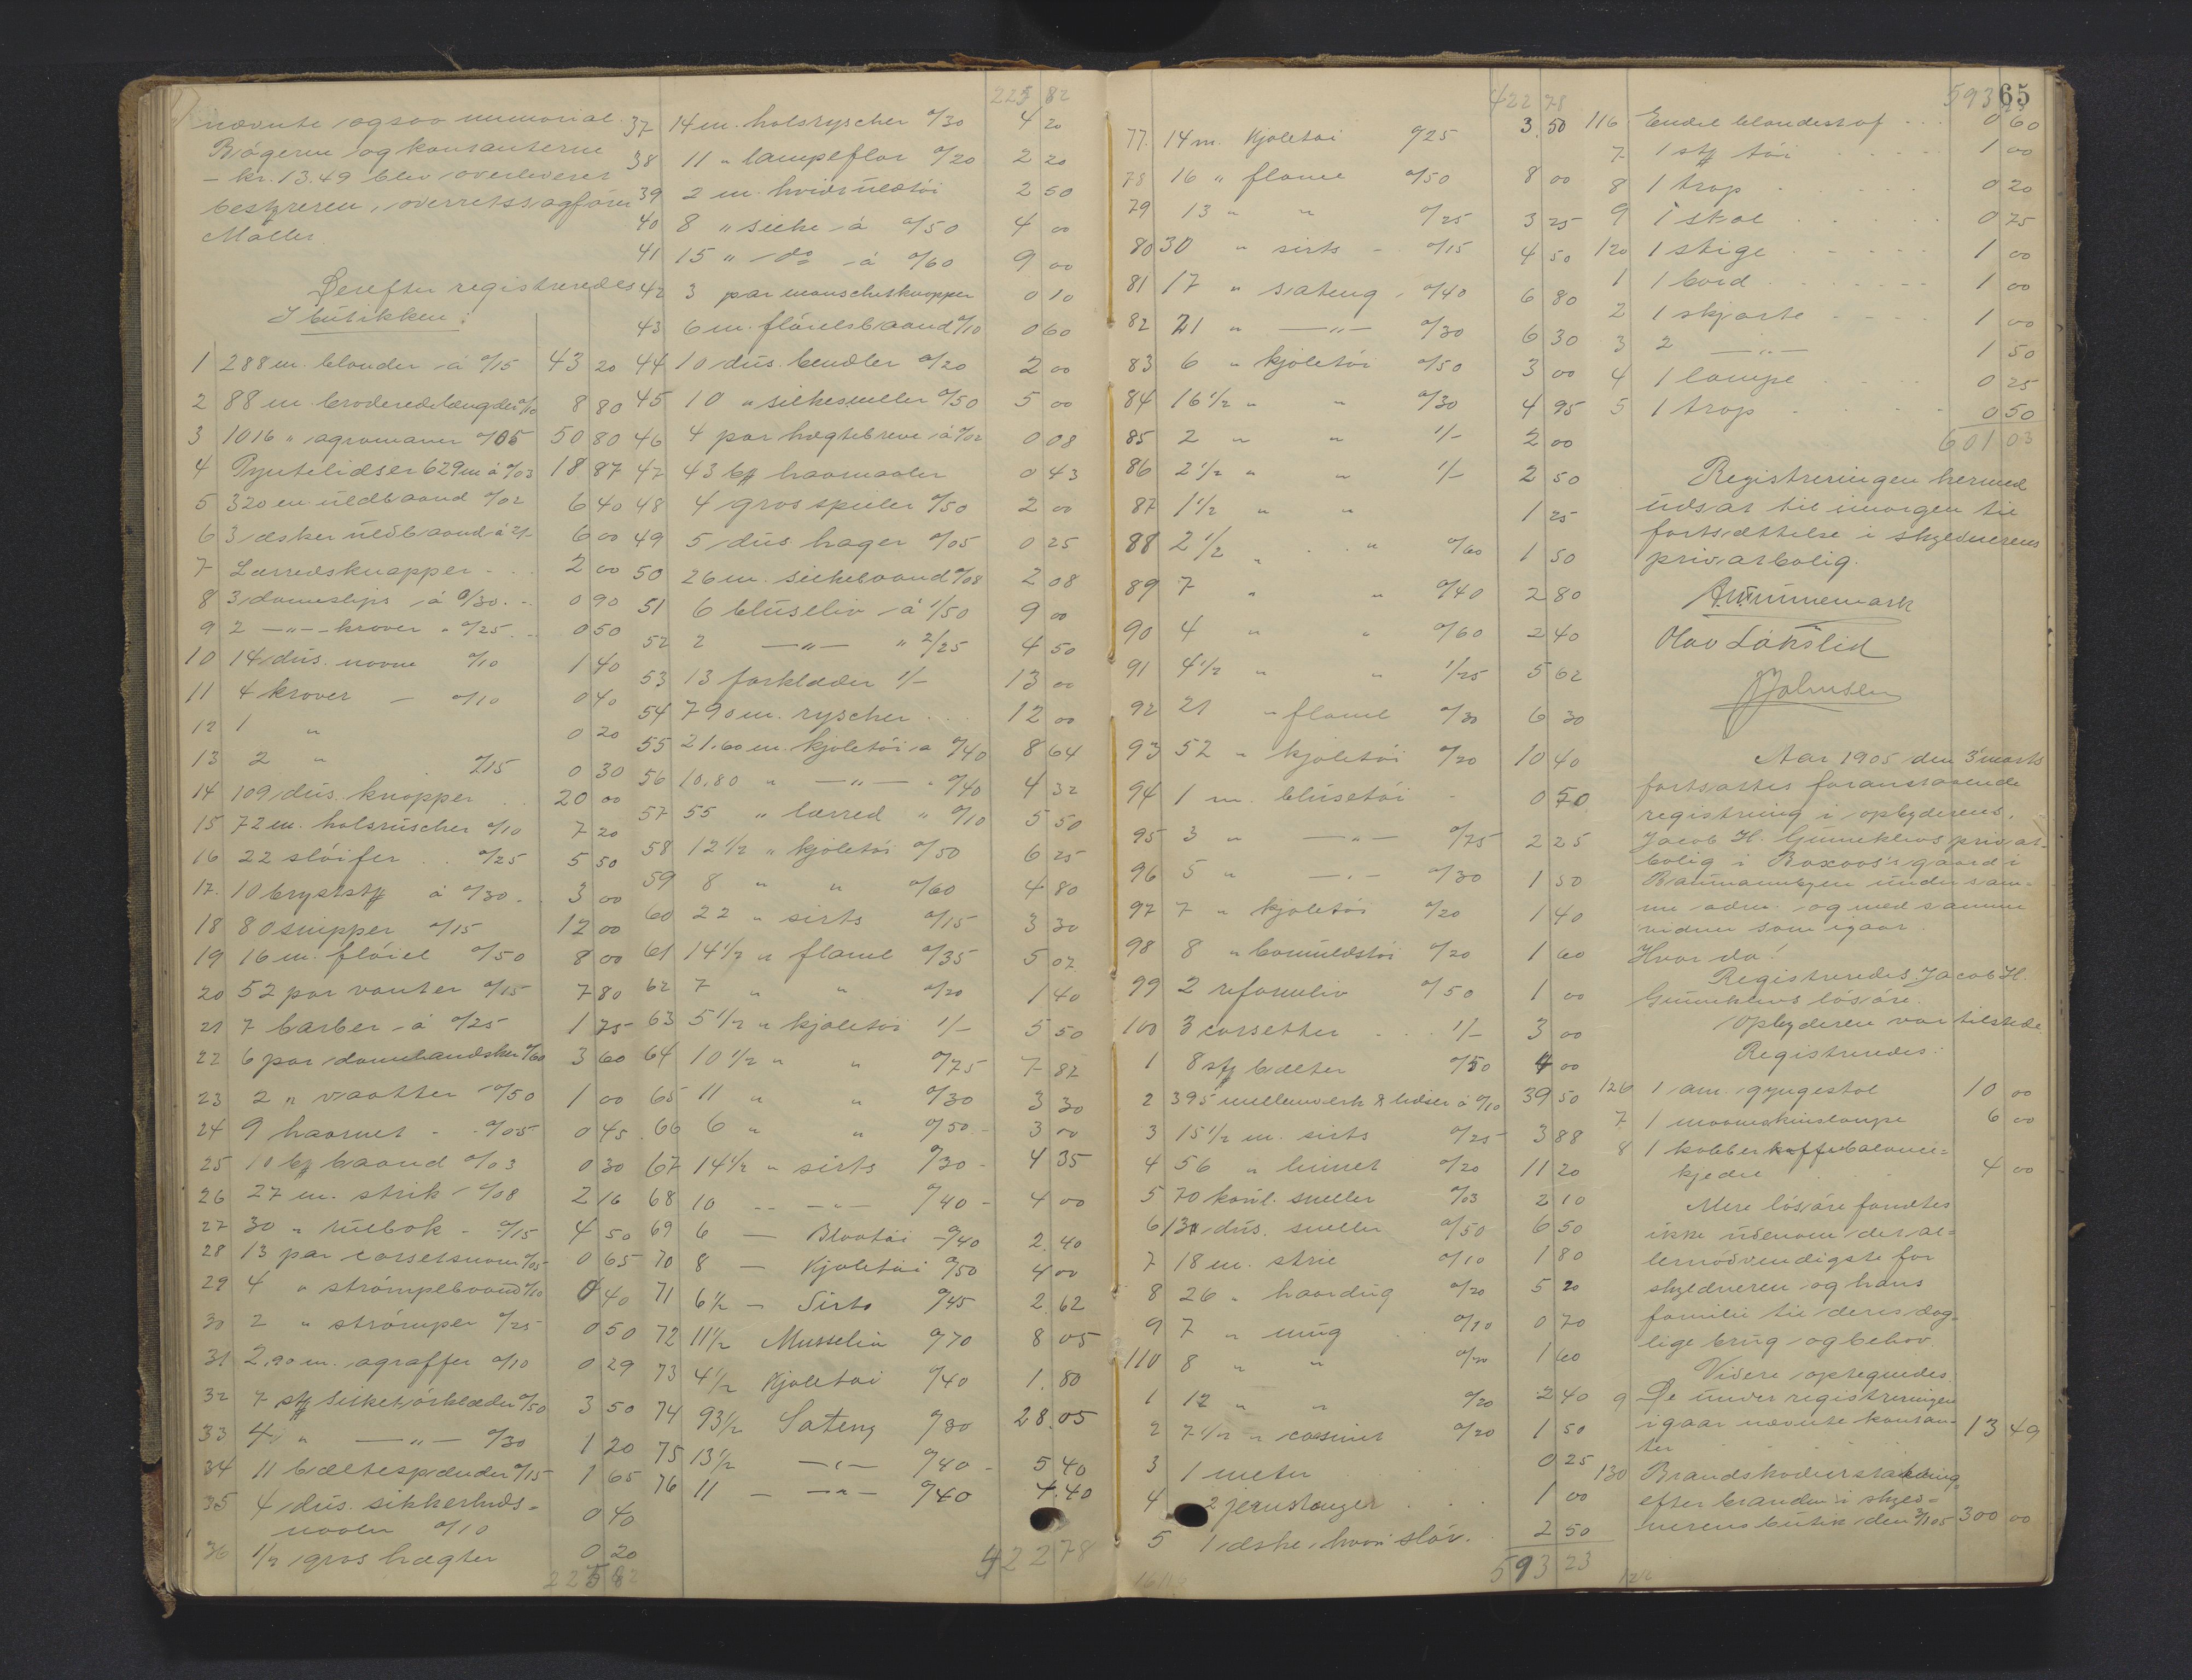 nævnte ogsaa memorial.
Bøgerne og kontanterne
– kr. 13.49 blev overleveret
bestyreren, overretssagfører
Møller.
Derefter registreredes
I butikken:
1 288 m. blonder á 0/15 43 20
2 88 m. broderedelængder 0/10 8 80
3 1016 " agramaner 0/05 50 80
4 Pyntelidser 629 m á 0/03 18 87
5 320 m uldbaand 0/02 6 40
6 3 æsker uldbaand á 2/- 6 00
7 Lærredsknapper - . . 2 00
8 3 dameslips á 0/30 . - 0 90
9 2 —"— kraver " 0/25 . . 0 50
10 14 dus. navne 0/10 1 40
11 4 kraver — 0/10 0 40
12 1 " 0 20
13 2 " 0/15 0 30
14 109 dus. knapper . . 20 00
15 72 m. halsrüscher 0/10 7 20
16 22 slöifer . . 0/25 5 50
17. 10 brystst á 0/30 . 3 00
18 80 snipper 0/15 12 00
19 16 m. flöiel 0/50 8 00
20 52 par vanter 0/15 7 80
21 7 barber á 0/25 1 75
22 6 par damehandsker 0/60 3 60
23 2 " vaatter 0/50 1 00
24 9 haarnet - - 0/05 0 45
25 10 baand 0/03 0 30
26 27 m. strik 0/08 2 16
27 30 " - 0/15 4 50
28 13 par corsetsnore 0/05 0 65
29 4 " strömpebaand 0/10 0 40
30 2 " strömper 0/25 0 50
31 2,90 m. agraffer 0/10 0 29
32 7 st silketörklæder 0/50 3 50
33 4 " —"— 0/30 1 20
34 11 beltespænder 0/15 1 65
35 4 dus. sikkerheds-
naaler 0/10 0 40
36 1/2 gros hægter 0 20
225 82
225 82
37 14 m. halsryscher 0/30 4 20
38 11 " lampeflor 0/20 2 20
39 2 m. hvidt uldtöi 2 50
40 8 " silke á 0/50 4 00
41 15 " do á 0/60 9 00
42 3 par manschetknapper 0 10
43 6 m. flöielsbaand 0/10 0 60
44 10 dus. bendler 0/20 2 00
45 10 " silkesneller 0/50 5 00
46 4 par hægtebreve á 0/02 0 08
47 43 haarnaaler 0 43
48 4 gros spiler 0/50 2 00
49 5 dus hager 0/05 0 25
50 26 m. silkebaand 0/08 2 08
51 6 bluseliv á 1/50 9 00
52 2 —"— " 2/25 4 50
53 13 forklæder 1/- 13 00
54 790 m. ryscher . . . 12 00
55 21.60 m. kjoletöi a 0/40 8 64
56 10,80 " —"— " 0/40 4 32
57 55 " lærred " 0/10 5 50
58 12 1/2 " kjoletöi 0/50 6 25
59 8 " " 0/60 4 80
60 22 " sirts 0/15 3 30
61 14 1/2 " flanel 0/35 5 07
62 7 " " 0/20 1 40
63 5 1/2 " kjoletöi 1/- 5 50
64 10 1/2 " " 0/75 7 87
65 11 " " 0/30 3 30
66 6 " " 0/50 - 3 00
67 14 1/2 " sirts 0/30 - 4 35
68 10 -- —"— 0/40 - 4 00
69 6 — 0/40 2.40
70 8 — Kjoletöi 0/50 4 00
71 6 1/2 — Sirts 0/45 2.62
72 11 1/2 Musselin 0/70 8 05
73 4 1/2 Kjoletöi 0/40 1.80
74 93 1/2 Sateng 0/30 28.05
75 13 1/2 —"— 0/40 - 5 40
76 11 — —"— 0/40 4.40
422 78
422 78
77. 14 m. Kjoletöi 0/25 3.50
78 16 " flanel 0/50 8 00
79 13 " " 0/25 3 25
80 30 " sirts - 0/15 4 50
81 17 " sateng . 0/40 6 80
82 21 " —"— 0/30 6 30
83 6 " kjoletöi 0/50 3 00
84 16 1/2 " " 0/30 4 95
85 2 " " 1/- 2 00
86 2 1/2 " " 1/- 2 50
87 1 1/2 " " 1 25
88 2 1/2 " " 0/60 1 50
89 7 " " 0/40 2 80
90 4 " " 0/60 2 40
91 4 1/2 " " 1/25 5 62
92 21 " flanel 0/30 6 30
93 52 " kjoletöi 0/20 10 40
94 1 m. blusetöi - 0 70
95 3 " —"— 0/75 2 25
96 5 " —"— 0/30 1 50
97 7 " kjoletöi 0/20 1 40
98 8 " bomuldstöi 0/20 1 60
99 2 reformliv 0/50 1 00
100 3 corsetter . . . 1/- 3 00
1 8 st belter 0/50 4 00
2 395 mellemverk & lidser á 0/10 39 50
3 15 1/2 m. sirts 0/25 3 88
4 56 " linnet 0/20 11 20
5 70 sneller 0/03 2 10
6 13 dus. sneller 0/50 6 50
7 18 m. strie 0/10 1 80
8 26 " haardug 0/20 5 20
9 7 " mug . . 0/10 0 70
110 8 " " 0/20 1 60
1 12 " " 0/20 2 40
2 7 1/2 " casimir 0/20 1 50
3 1 meter 0 25
4 2 jernstænger . . 1 00
5 1 æske, hvori slör. 2 50
593 23
593 23
65
116 Endel blondestof . . . 0 60
7 1 st töi . . . . . 1 00
8 1 trap . . . . . 0 20
9 1 stol . . . . . 0 75
120 1 stige . . . . . 1 00
1 1 bord . . . . . 1 00
2 1 skjorte . . . . 1 00
3 2 —"— 1 50
4 1 lampe . . . . 0 25
5 1 trap . . . . . 0 50
601 03
Registreringen hermed
udsat til imorgen til
fortsættelse i skyldnerens
privatbolig.
Olav Lökslid
JJohnsen
Aar 1905 den 3' marts
fortsattes foranstaaende
registrering i opbyderens,
Jacob H. Gunneklevs privat-
bolig i gaard i
under sam-
me adm. og med samme
vidner som igaar.
Hvor da!
Registreredes Jacob H.
Gunneklevs lösöre.
Opbyderen var tilstede
Registreredes:
126 1 am. gyngestol 10 00
7 1 maaneskinslampe 6 00
8 1 kobber kaffebalance-
kjedel . . 4 00
Mere lösöre fandtes
ikke udenom det al-
lernødvendigste for
skyldneren og hans
familie til deres dag-
lige brug og behov.
Videre optegnedes.
9 De under registreringen
igaar nævnte kontan-
ter . . . . . 13 49
130 Brandskadeerstatning
efter branden i skyld-
nerens butik den 3/1 05 300 00